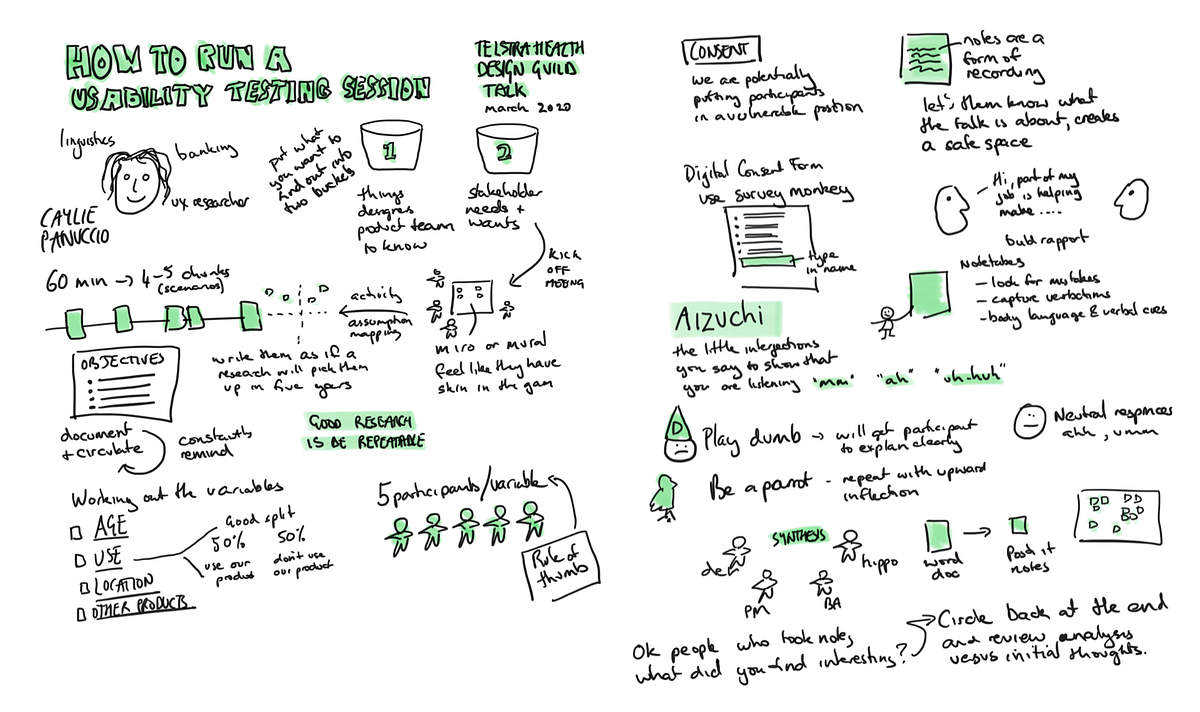 HOW TO RUN A
USABILITY TESTING SESSION
TELSTRA HEALTH
DESIGN GUILD
TALK
march 2020
linguistics
banking
ux researcher
CAYLIE
PANUCCIO
put what
you want to
find out into
two buckets
1
things
designers
product team
to know
2
stakeholder
needs +
wants
KICK
OFF
MEETING
60 min → 4-5 chunks
(scenarios)
activity
assumption
mapping
miro or mural
feel like they have
skin in the gam
OBJECTIVES
write them as if a
research will pick them
up in five years
document
+ circulate
constantly
remind
GOOD RESEARCH
IS BE REPEATABLE
Working out the variables
AGE
USE
LOCATION
OTHER PRODUCTS
Good split
50% 50%
use our
product
don't use
our product
5 participants/variable
Rule of
thumb
CONSENT
we are potentially
putting participants
in a vulnerable position
notes are a
form of
recording
let's them know what
the talk is about, creates
a safe space
Digital Consent Form
use survey monkey
type
in name
Hi, part of my
job is helping
make ....
build rapport
Notetakes
- look for mistakes
- capture verbatims
- body language & verbal cues
AIZUCHI
the little interjections
you say to show that
you are listening "mm" "ah" "uh-huh"
D
Play dumb → will get participant
to explain clearly
Neutral responces
ahh, umm
Be a parrot - repeat with upward
inflection
SYNTHESIS
dev
PM
BA
hippo
word
doc
Post it
notes
Ok people who took notes,
what did you find interesting?
Circle back at the end
and review analysis
versus initial thoughts.